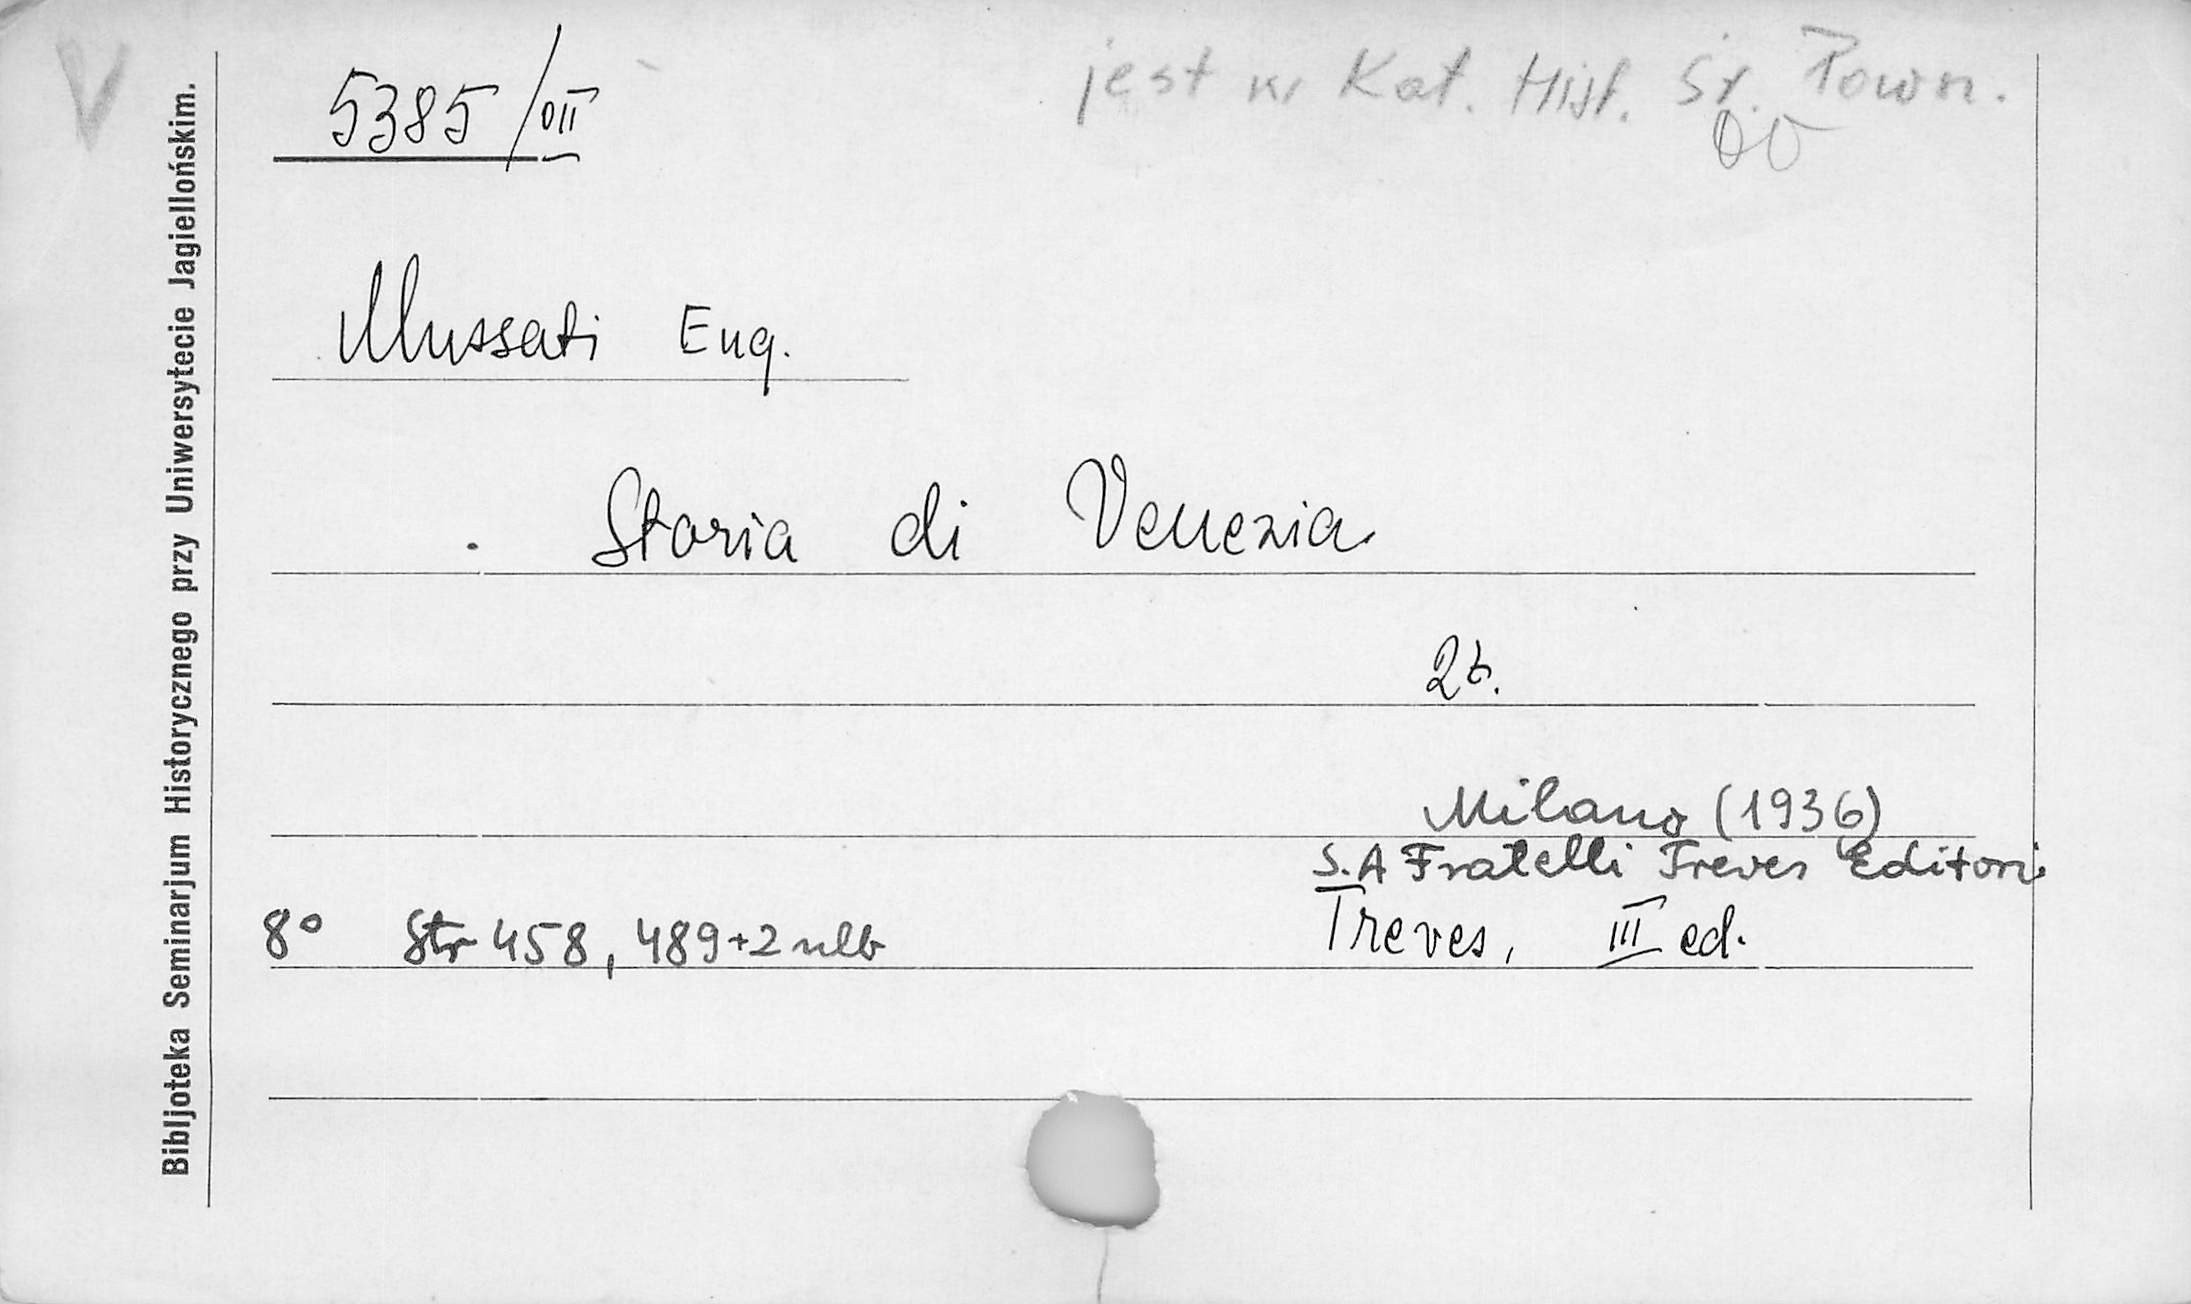 V
5385/VII
jest w Kat. Hist. Śr. Pown.
Mussati Eug.
Storia di Venezia
2t.
Milano (1936)
S. A Fratelli Treves Editori
8° Str 458, 489+2 nlb
Treves, III ed.
Bibljoteka Seminarjum Historycznego przy Uniwersytecie Jagiellońskim.